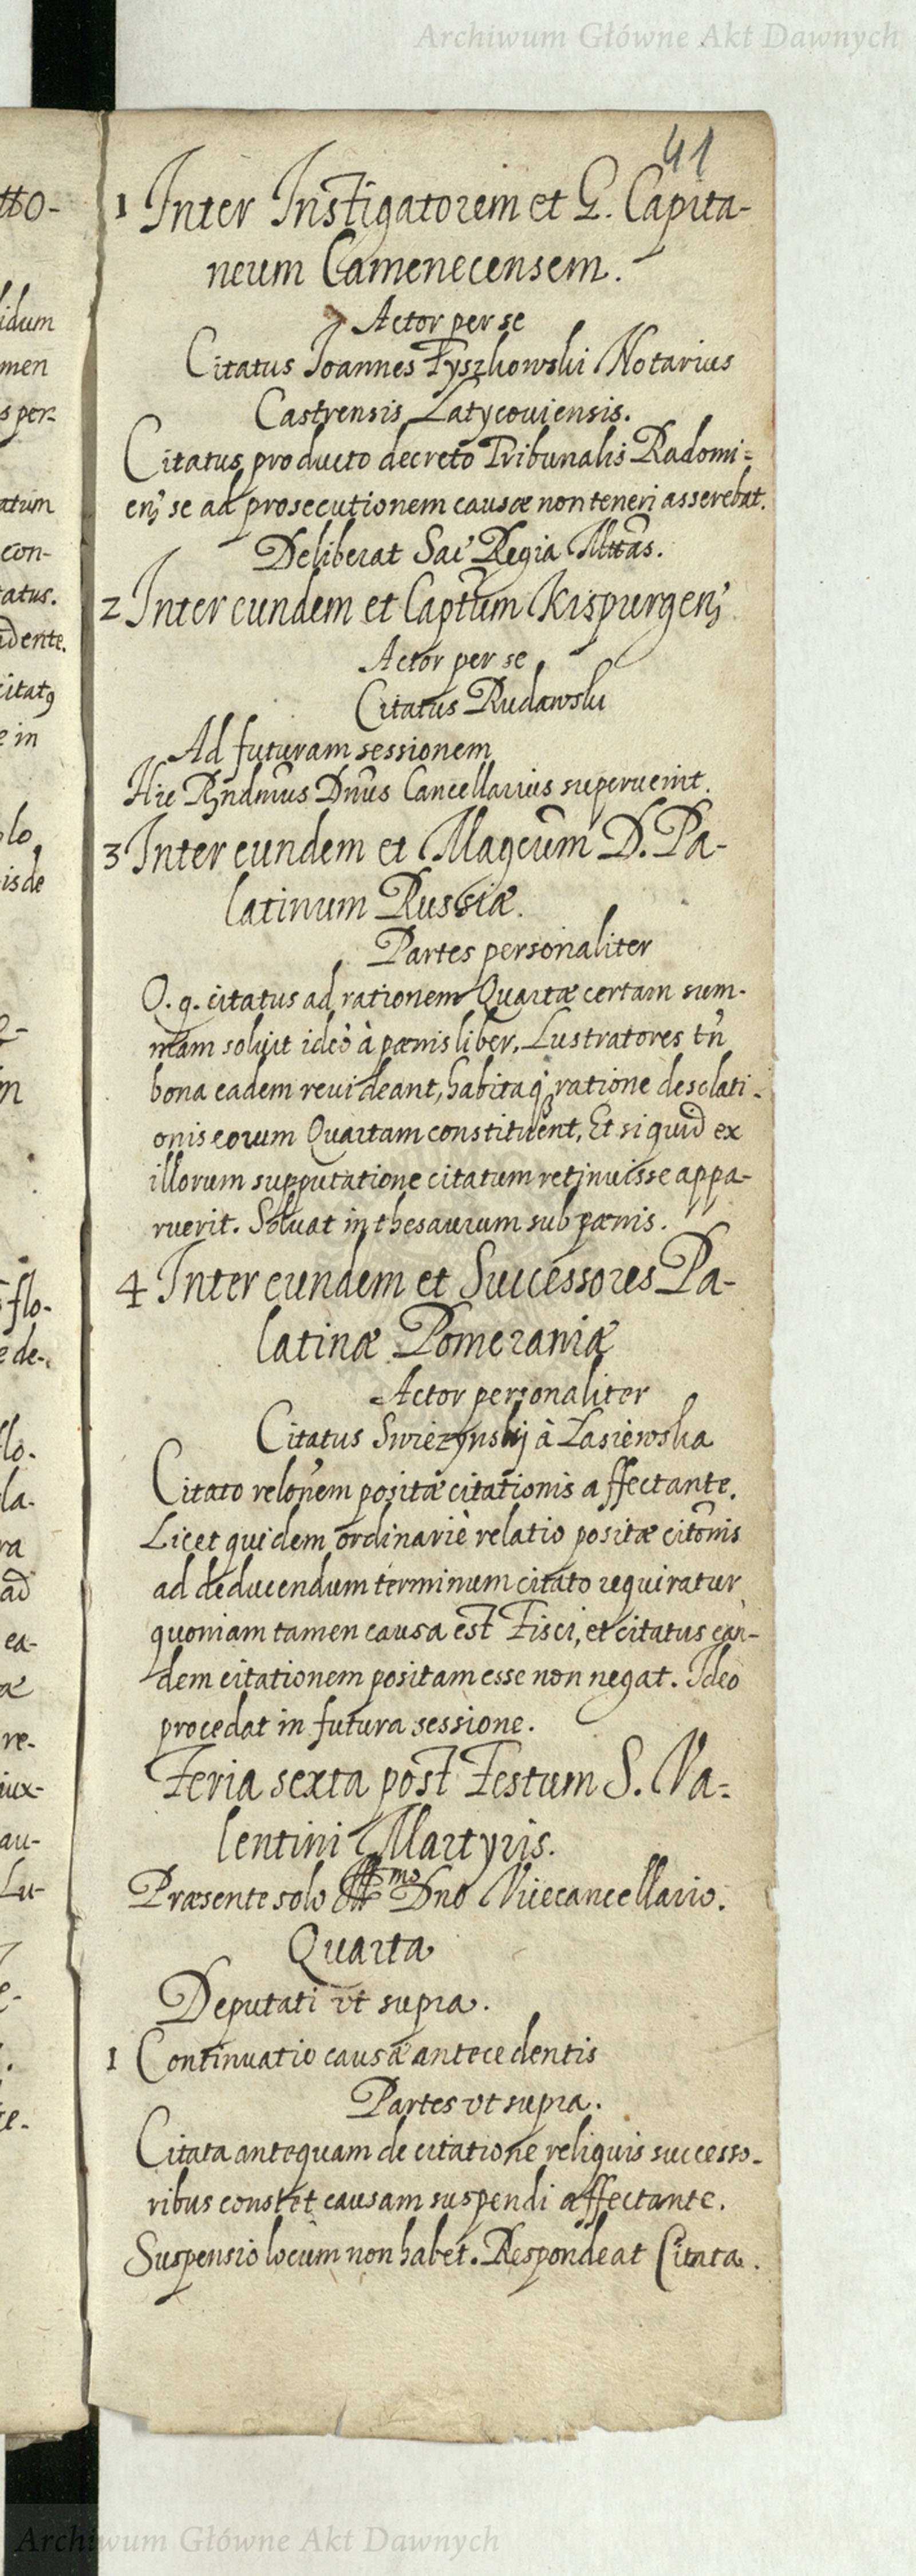 Archiwum Główne Akt Dawnych
41
1 Inter Instigatorem et G. Capita-
neum Camenecensem.
Actor per se
Citatus Joannes Fyszkowski Notarius
Castrensis Latycouiensis.
Citatus producto decreto Tribunalis Radomi=
enʒ se ad prosecutionem causæ non teneri asserebat.
Deliberat Sac Regia Mttas.
2 Inter eundem et Captum Kispurgenʒ
Actor per se
Citatus Rudawski
Ad futuram sessionem
Hic Rndmus Dnus Cancellarius superuenit.
3 Inter eundem et Magcum D. Pa-
latinum Russiæ.
Partes personaliter
O. q. citatus ad rationem Quartæ certam sum-
mam soluit ideò à pœnis liber, Lustratores tn
bona eadem reuideant, habitaq ratione desolati-
onis eorum Quartam constituent, Et si quid ex
illorum supputatione citatum retinuisse appa-
ruerit. Soluat in thesaurum sub pœnis.
4 Inter eundem et Successores Pa-
latinæ Pomeraniæ
Actor personaliter
Citatus Swiezynskij à Lasiewska
Citato relonem positæ citationis affectante.
Licet quidem ordinariè relatio positæ citonis
ad deducendum terminum citato requiratur
quoniam tamen causa est Fisci, et citatus ean-
dem citationem positam esse non negat. Ideo
procedat in futura sessione.
Feria sexta post Festum S. Va=
lentini Martyris.
Præsente solo Dno Vicecancellario.
Quarta
Deputati vt supra.
1 Continuatio causæ antecedentis
Partes vt supra.
Citata antequam de citatione reliquis successo-
ribus constet causam suspendi affectante.
Suspensio locum non habet. Respondeat Citata.
tto-
idum
men
s per-
atum
con-
tatus.
idente.
citatꝯ
e in
olo
is de
flo-
e de-
flo-
la-
ra
ad
ea-
re-
iux-
au-
Lu-
Archiwum Główne Akt Dawnych